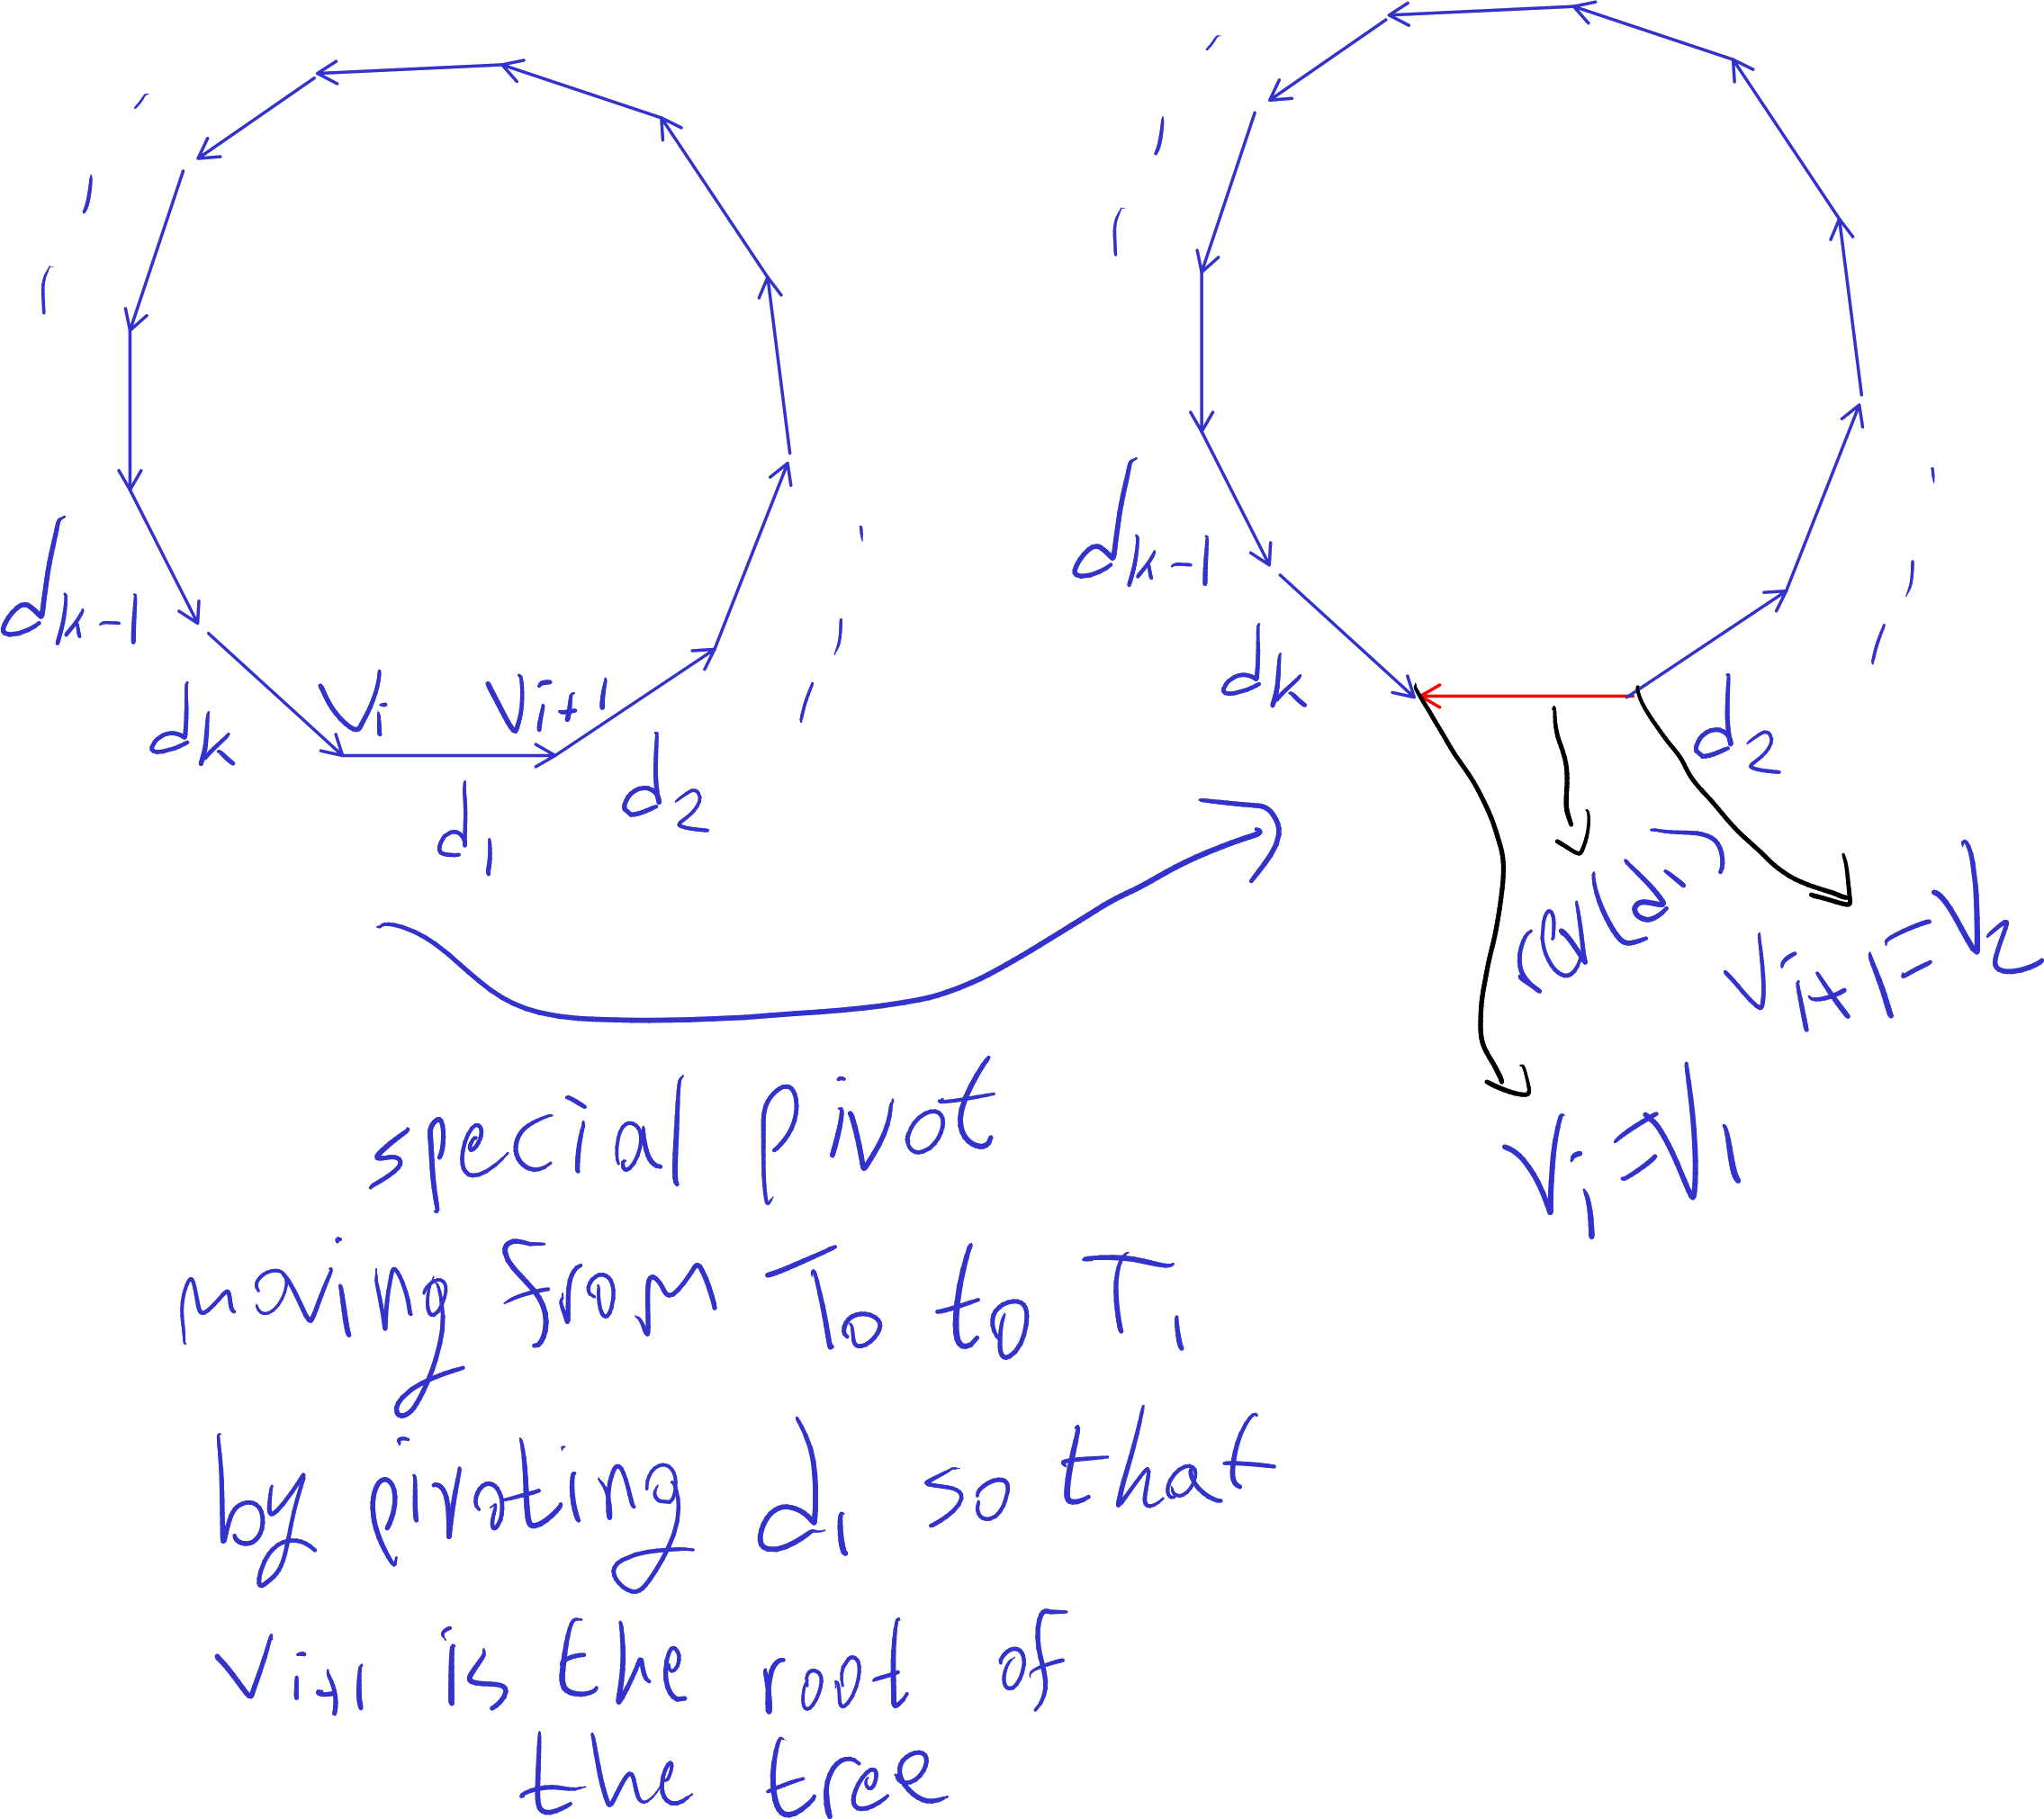 d_{k-1}
d_k
V_i
V_{i+1}
d_1
d_2
d_{k-1}
d_k
d_2
V_{i+1}=V_2
V_i=V_1
special pivot
moving from T_0 to T_1
by pivoting d_1 so that
V_{i+1} is the root of
the tree